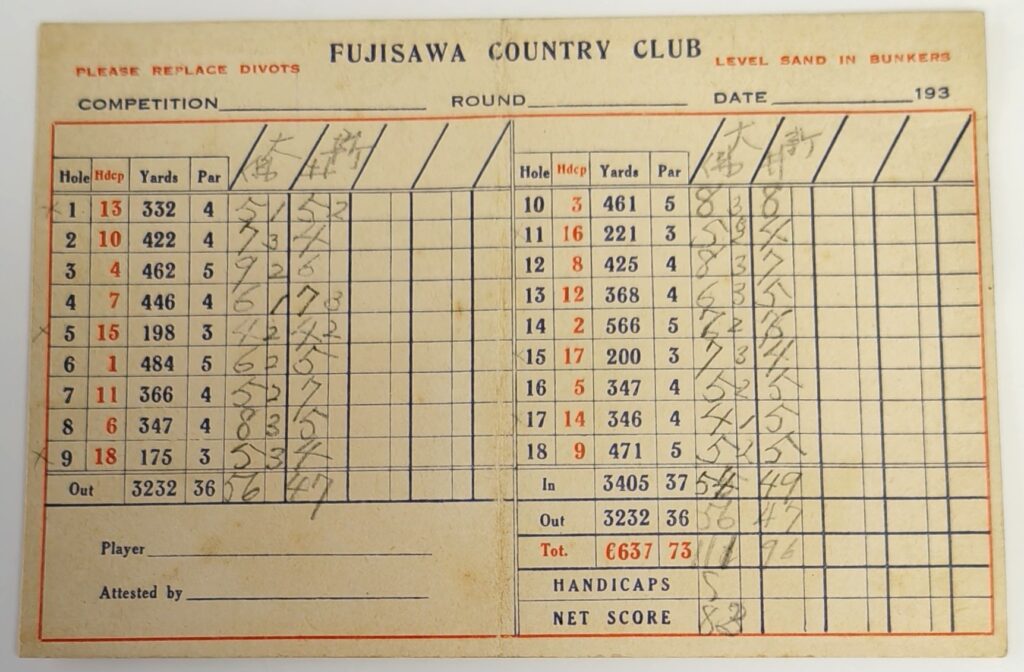 FUJISAWA COUNTRY CLUB
PLEASE REPLACE DIVOTS
LEVEL SAND IN BUNKERS
COMPETITION ROUND DATE 193
大 新
佛 井
Hole Hdcp Yards Par
1 13 332 4 5 1 5 2
2 10 422 4 7 3 4
3 4 462 5 9 2 6
4 7 446 4 6 1 7 3
5 15 198 3 4 2 4 2
6 1 484 5 6 2 5
7 11 366 4 5 2 7
8 6 347 4 8 3 5
9 18 175 3 5 3 4
Out 3232 36 56 47
Player
Attested by
大 新
佛 井
Hole Hdcp Yards Par
10 3 461 5 8 3 8
11 16 221 3 5 4
12 8 425 4 8 3 7
13 12 368 4 6 3 5
14 2 566 5 7 2
15 17 200 3 7 3 4
16 5 347 4 5 2 5
17 14 346 4 4 1 5
18 9 471 5 5 2 5
In 3405 37 49
Out 3232 36 56 47
Tot. 6637 73 111 96
HANDICAPS
NET SCORE